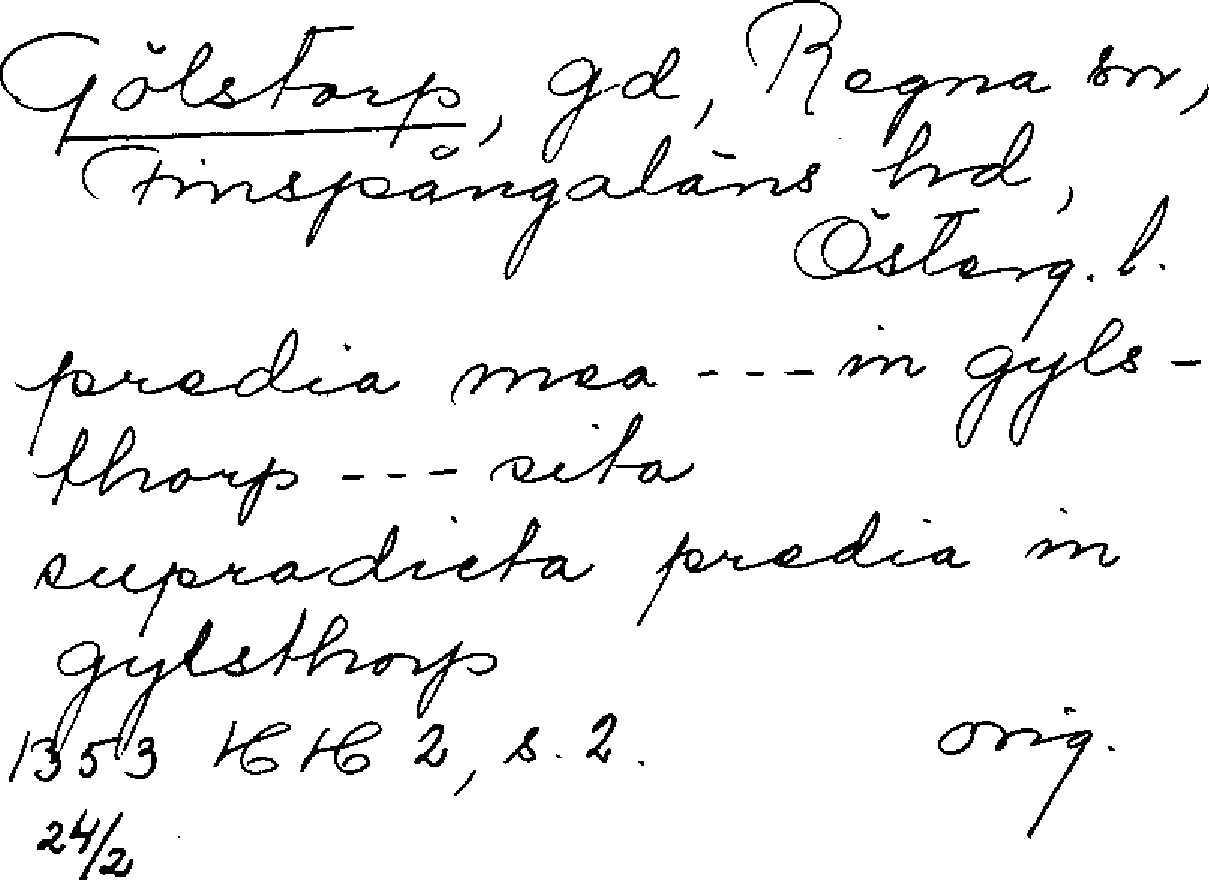 Gölstorp, gd, Regna sn,
Finspångaläns hd,
Österg. l.
predia mea --- in gyls-
thorp --- sita
supradicta predia in
gylsthorp
1353 HH 2, s. 2. orig.
24/2